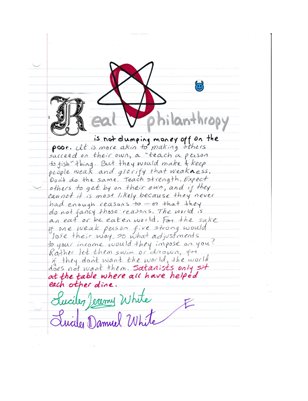 Real philanthropy
is not dumping money off on the
poor. It is more akin to making others
succeed on their own, a "teach a person
to fish" thing. But they would make & keep
people weak and glorify that weakness.
Don't do the same. Teach strength. Expect
others to get by on their own, and if they
cannot it is most likely because they never
had enough reasons to — or that they
do not fancy those reasons. The world is
an eat or be eaten world. For the sake
of one weak person five strong would
lose their way, so what adjustments
to your income would they impose on you?
Rather let them swim or drown, you
if they don't want the world, the world
does not want them. Satanists only sit
at the table where all have helped
each other dine.
Lucifer Jeremy White
Lucifer Damuel White